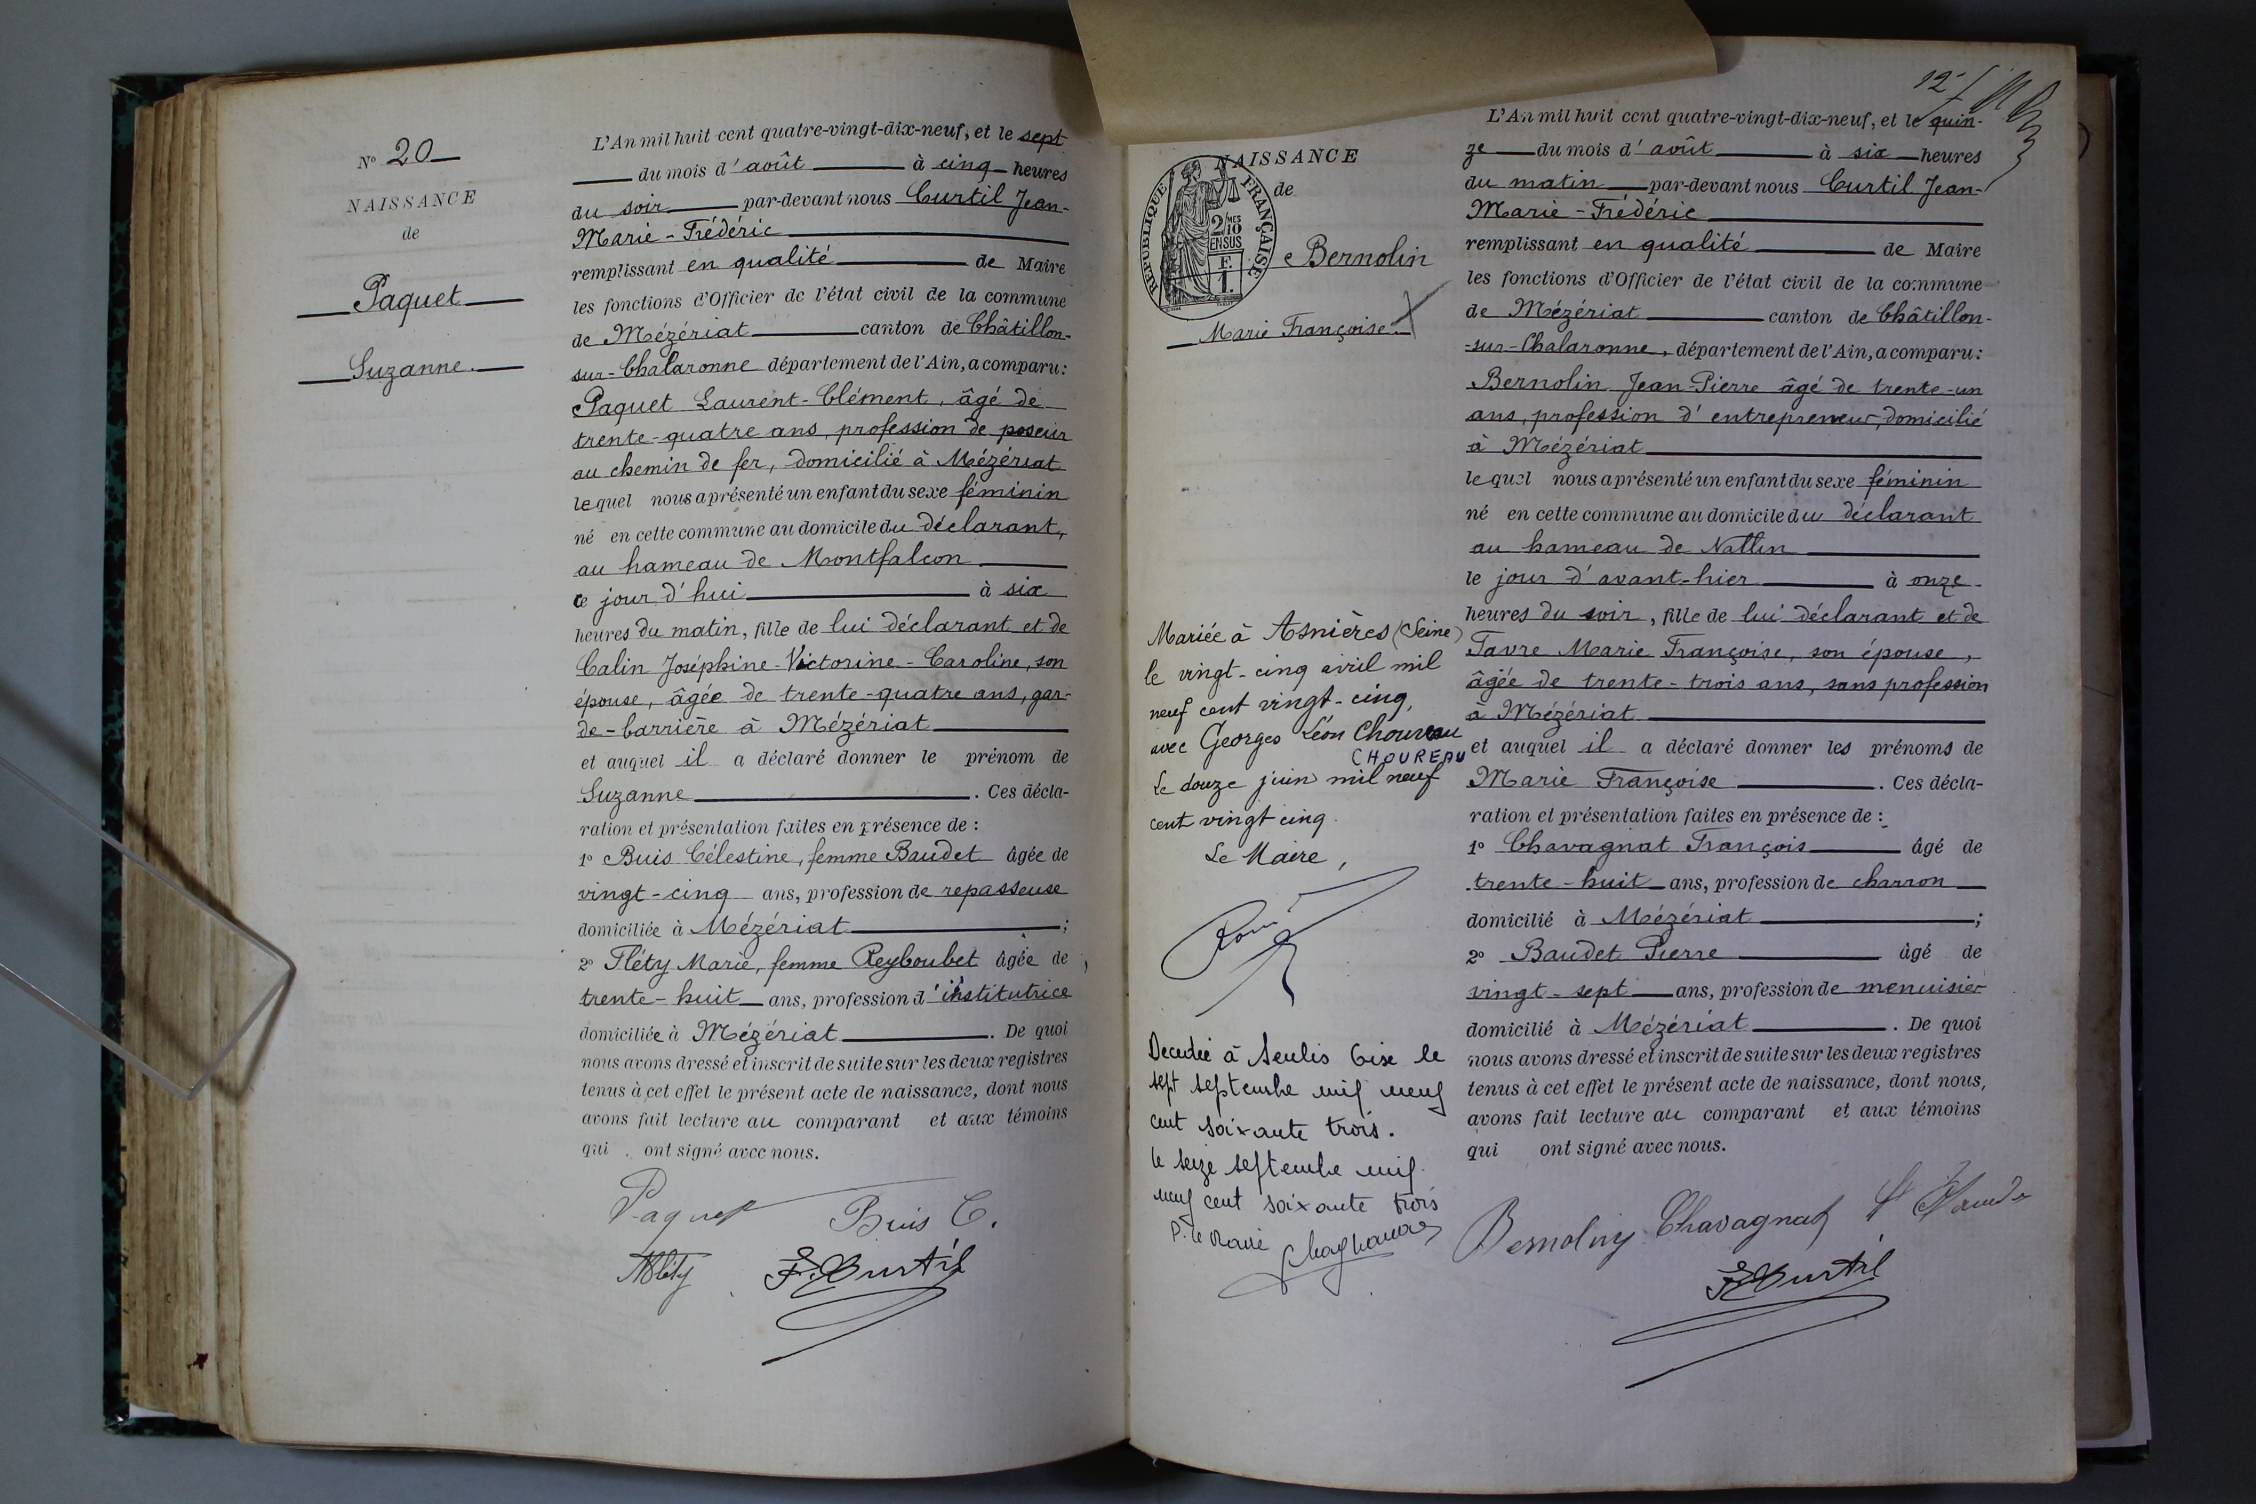 N° 20
NAISSANCE
de
Paquet
Suzanne.
L'An mil huit cent quatre-vingt-dix-neuf, et le sept
du mois d'août à cinq heures
du soir par-devant nous Curtil Jean-
Marie-Frédéric
remplissant en qualité de Maire
les fonctions d'Officier de l'état civil de la commune
de Mézériat canton de Châtillon-
sur-Chalaronne département de l'Ain, a comparu:
Paquet Laurent-Clément, âgé de
trente-quatre ans, profession de poseur
au chemin de fer, domicilié à Mézériat
lequel nous a présenté un enfant du sexe féminin
né en cette commune au domicile du déclarant,
au hameau de Montfalcon
ce jour d'hui à six
heures du matin, fille de lui déclarant et de
Calin Joséphine-Victorine-Caroline, son
épouse, âgée de trente-quatre ans, gar-
de-barrière à Mézériat
et auquel il a déclaré donner le prénom de
Suzanne . Ces décla-
ration et présentation faites en présence de :
1° Buis Célestine, femme Baudet âgée de
vingt-cinq ans, profession de repasseuse
domiciliée à Mézériat ;
2° Fléty Marie, femme Reyboubet âgée de
trente-huit ans, profession d'institutrice
domiciliée à Mézériat . De quoi
nous avons dressé et inscrit de suite sur les deux registres
tenus à cet effet le présent acte de naissance, dont nous
avons fait lecture au comparant et aux témoins
qui ont signé avec nous.
Paquet Buis C.
MFléty F. Curtil
12
NAISSANCE
de
RÉPUBLIQUE FRANÇAISE
2/10 EN SUS
F. 1.
Bernolin
Marie Françoise.
Mariée à Asnières (Seine)
le vingt-cinq avril mil
neuf cent vingt-cinq,
avec Georges Léon Choureau
CHOUREAU
Le douze juin mil neuf
cent vingt cinq.
Le Maire,
Décédée à Senlis Oise le
sept septembre mil neuf
cent soixante trois.
le seize septembre mil
neuf cent soixante trois
P. le Maire
L'An mil huit cent quatre-vingt-dix-neuf, et le quin-
ze du mois d'août à six heures
du matin par-devant nous Curtil Jean-
Marie-Frédéric
remplissant en qualité de Maire
les fonctions d'Officier de l'état civil de la commune
de Mézériat canton de Châtillon-
-sur-Chalaronne, département de l'Ain, a comparu:
Bernolin Jean-Pierre âgé de trente-un
ans, profession d'entrepreneur, domicilié
à Mézériat
lequel nous a présenté un enfant du sexe féminin
né en cette commune au domicile du déclarant
au hameau de
le jour d'avant-hier à onze
heures du soir, fille de lui déclarant et de
Favre Marie Françoise, son épouse,
âgée de trente-trois ans, sans profession
à Mézériat
et auquel il a déclaré donner les prénoms de
Marie Françoise . Ces décla-
ration et présentation faites en présence de :
1° Chavagnat François âgé de
trente-huit ans, profession de charron
domicilié à Mézériat ;
2° Baudet Pierre âgé de
vingt-sept ans, profession de menuisier
domicilié à Mézériat . De quoi
nous avons dressé et inscrit de suite sur les deux registres
tenus à cet effet le présent acte de naissance, dont nous,
avons fait lecture au comparant et aux témoins
qui ont signé avec nous.
Bernolin Chavagnat
F. Curtil